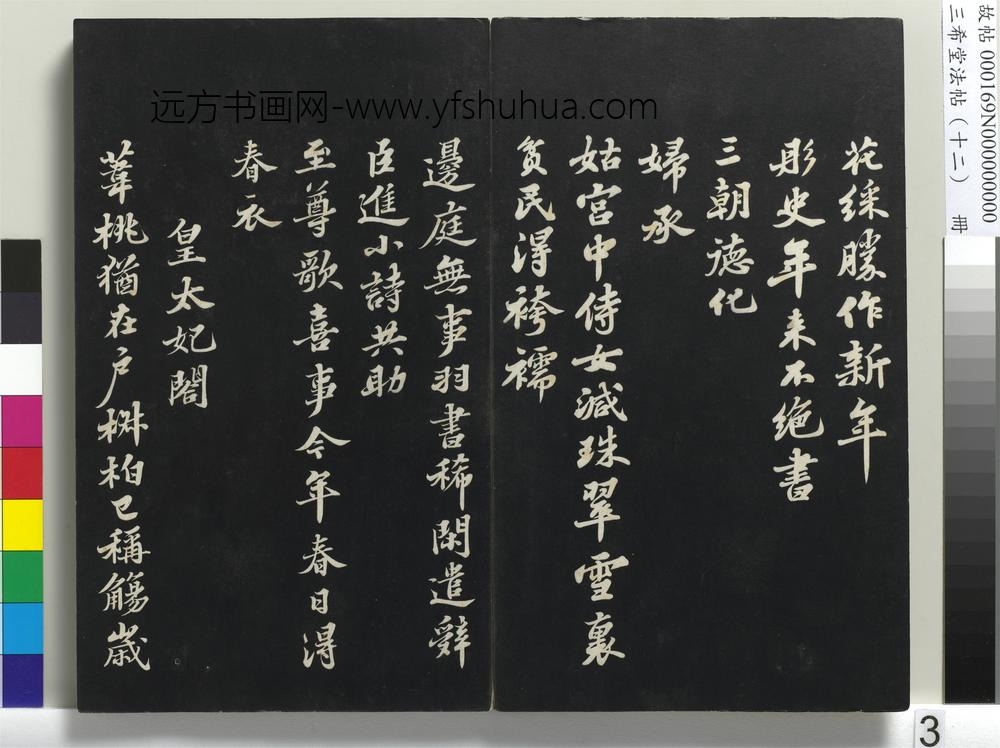 故帖 000169N000000000
三希堂法帖（十二） 冊
远方书画网-www.yfshuhua.com
花綵勝作新年
彤史年来不絶書
三朝德化
婦承
姑宮中侍女減珠翠雪裏
貧民得袴襦
邊庭無事羽書稀閑遣辭
臣進小詩共助
至尊歌喜事今年春日得
春衣
皇太妃閤
葦桃猶在户椒柏已稱觴歲
3